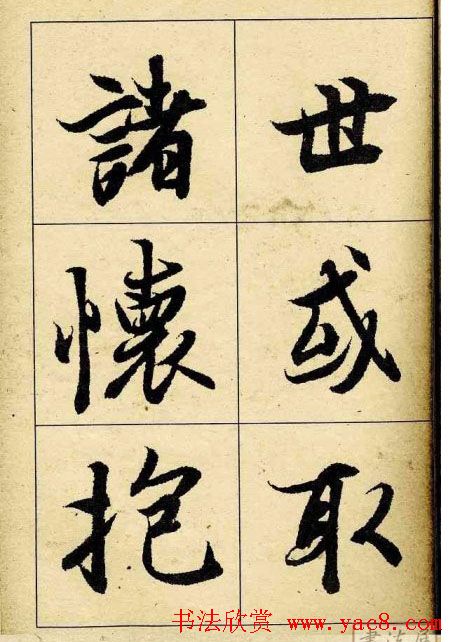 世或取
諸懷抱
书法欣赏 www.yac8.com